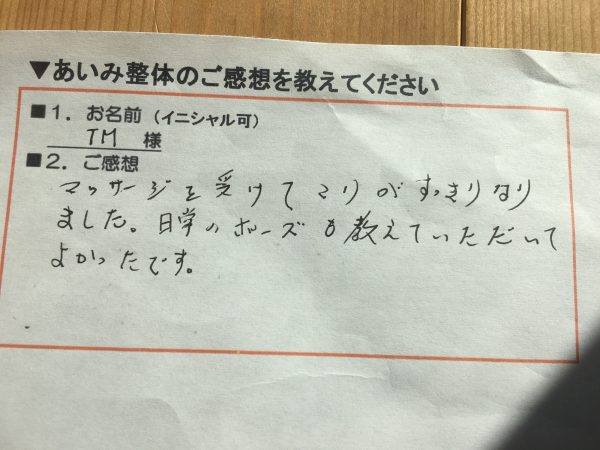 ▼あいみ整体のご感想を教えてください
■1．お名前（イニシャル可）
TM 様
■2．ご感想
マッサージを受けてこりがすっきりなり
ました。日常のポーズも教えていただいて
よかったです。